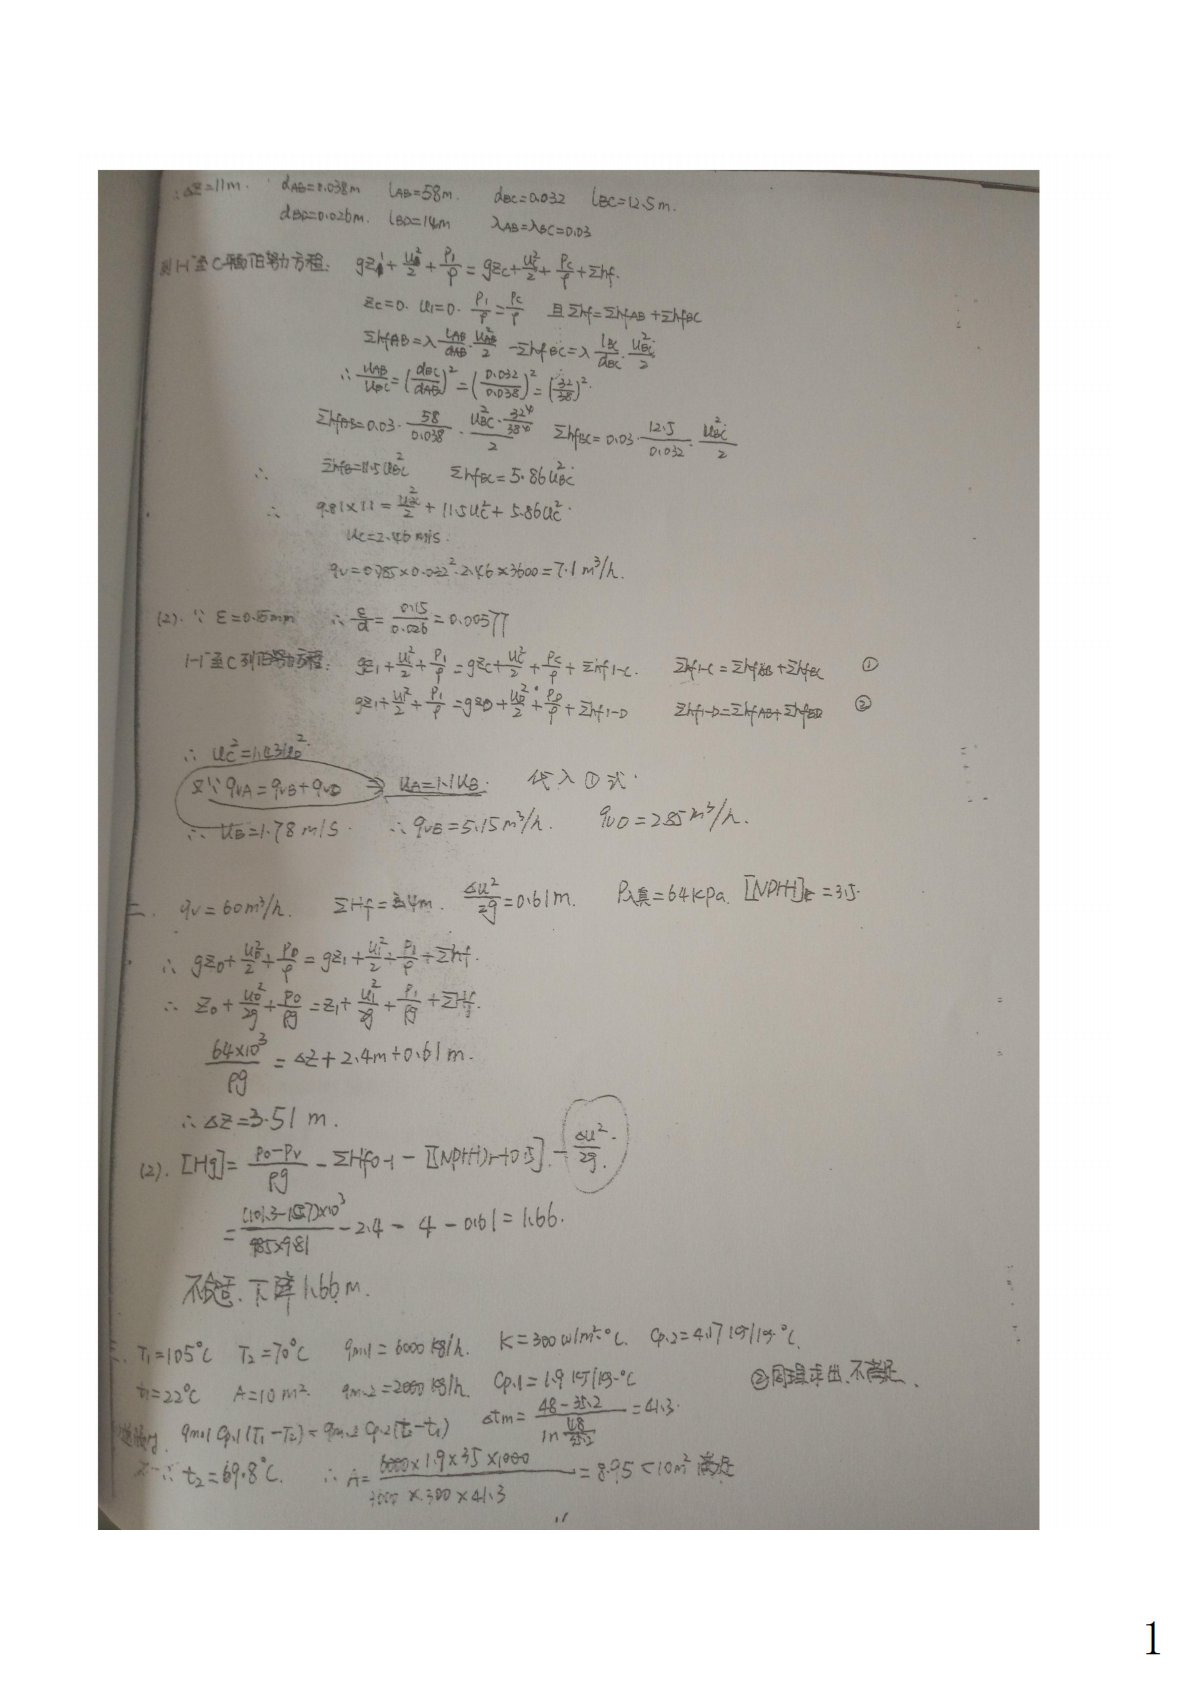 ∴ΔZ=11m. dAB=0.038m lAB=58m. dBC=0.032 lBC=12.5m.
dBD=0.026m. lBD=14m λAB=λBC=0.03
1-1'至C列伯努力方程: gz1+u1²/2+P1/ρ=gzc+uc²/2+Pc/ρ+Σhf.
Zc=0. u1=0. P1/ρ=Pc/ρ 且Σhf=ΣhfAB+ΣhfBC
ΣhfAB=λ lAB/dAB·uAB²/2 ΣhfBC=λ lBC/dBC·uBC²/2
∴ uAB/uBC=(dBC/dAB)²=(0.032/0.038)²=(32/38)².
ΣhfAB=0.03·58/0.038·(uBC²·32⁴/38⁴)/2 ΣhfBC=0.03·12.5/0.032·uBC²/2
∴ ΣhfB=11.5uBC² ΣhfBC=5.86uBC²
∴ 9.81×11=uc²/2+11.5uc²+5.86uc².
uc=2.46m/s.
qv=0.785×0.032²·2.46×3600=7.1m³/h.
(2). ∵ ε=0.15mm ∴ε/d=0.15/0.026=0.00577
1-1'至C列伯努力方程: gz1+u1²/2+P1/ρ=gzc+uc²/2+Pc/ρ+Σhf1-C. Σhf1-C=ΣhfAB+ΣhfBC ①
gz1+u1²/2+P1/ρ=gzD+uD²/2+PD/ρ+Σhf1-D Σhf1-D=ΣhfAB+ΣhfBD ②
∴ uc²=1.43uD².
又∵qvA=qvB+qvD ⇒ uA=1.1uB. 代入①式.
∴ uB=1.78m/s. ∴qvB=5.15m³/h. qvD=2.85m³/h.
二. qv=60m³/h. ΣHf=2.4m. Δu²/2g=0.61m. P入真=64kPa. =3.5.
∴ gz0+u0²/2+P0/ρ=gz1+u1²/2+P1/ρ+Σhf.
∴ z0+u0²/2g+P0/ρg=z1+u1²/2g+P1/ρg+ΣHf.
64×10³/ρg=ΔZ+2.4m+0.61m.
∴ΔZ=3.51m.
(2). [Hg]=(P0-Pv)/ρg-ΣHf0-1-[(NPSH)r+0.5].-Δu²/2g.
=(101.3-15.7)×10³/985×9.81-2.4-4-0.61=1.66.
不合适.下降1.66m.
T1=105℃ T2=70℃ qm.1=6000kg/h. K=300w/m²·℃. Cp.2=4.17kJ/kg·℃.
t1=22℃ A=10m². qm.2=2000kg/h. Cp.1=1.9kJ/kg·℃ ②同理求出.不满足.
qm.1Cp.1(T1-T2)=qm.2Cp.2(t2-t1) Δtm=48-35.2/ln 48/35.2=41.3.
∴ t2=69.8℃. ∴A=6000×1.9×35×1000/3600×300×41.3=8.95<10m²满足
1